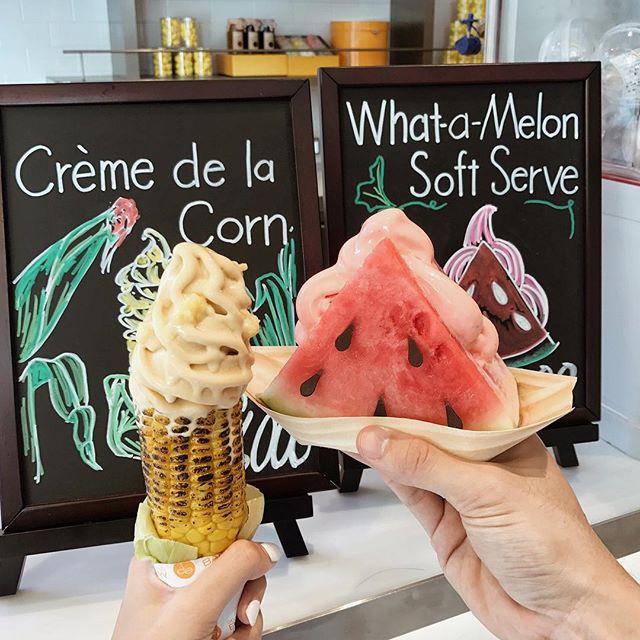 Crème de la
Corn
What-a-Melon
Soft Serve